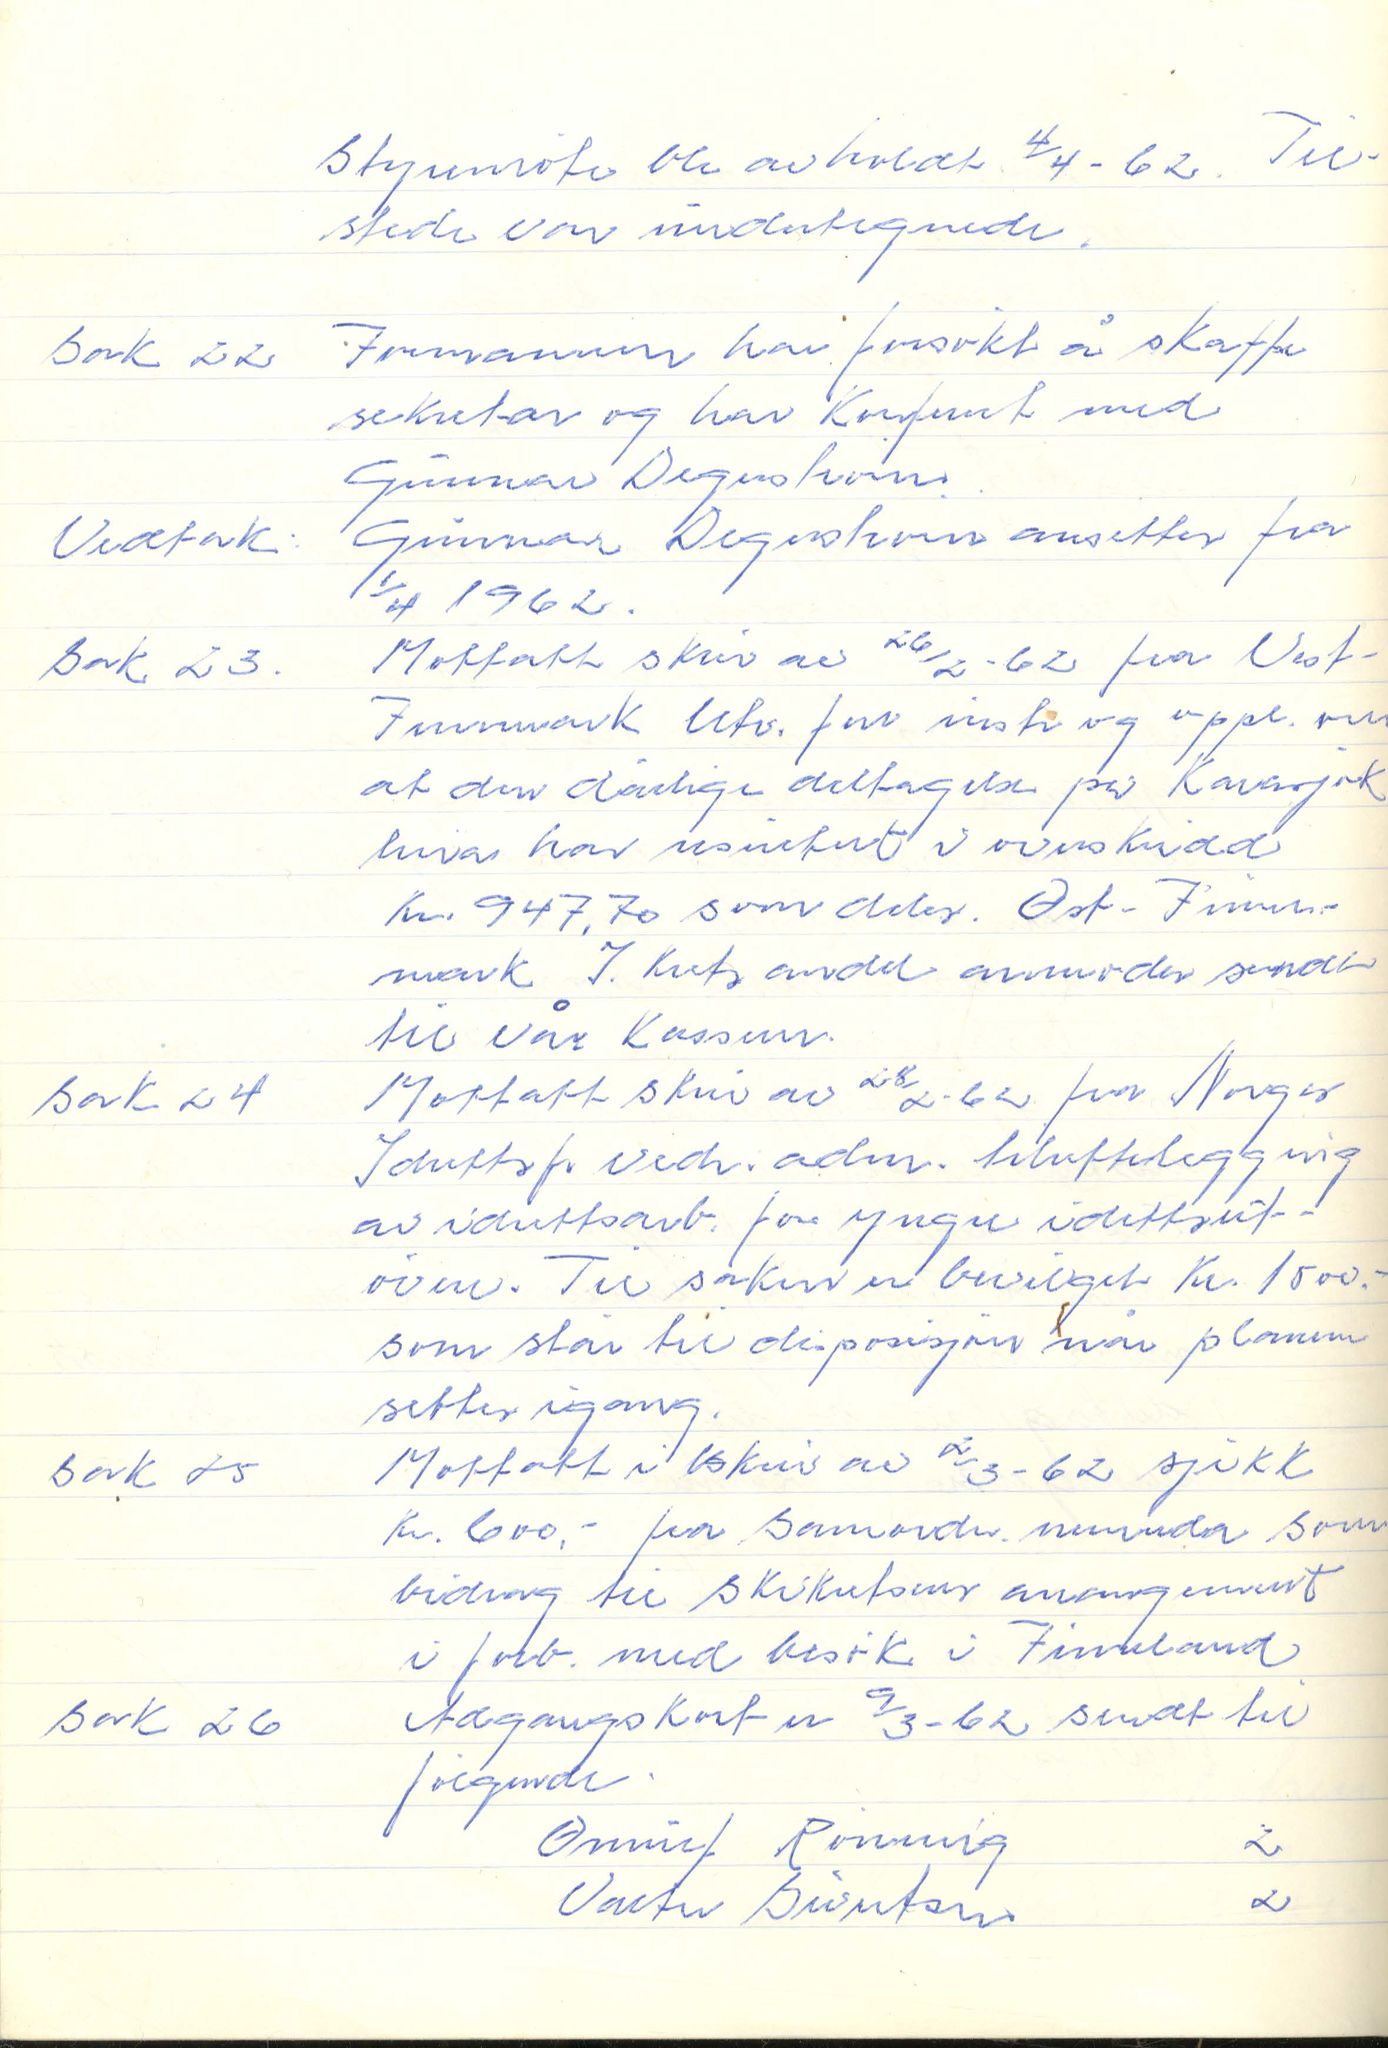 Styremöte ble avholdt 4/4-62. Til-
stede var undertegnede.
Sak 22 Formannen har forsökt å skaffe
sekretær og har konferert med
Gunnar Degerström.
Vedtak: Gunnar Degerström ansettes fra
1/4 1962.
Sak 23. Mottatt skriv av 26/2-62 fra Vest-
Finnmark Utv. for instr og oppl. om
at den dårlige deltagelse på Karasjok
kurs har resultert i overskudd
Kr. 947,70 som deles. Øst-Finn-
mark I. krets andel anmodes sendt
til vår Kasserer.
Sak 24 Mottatt skriv av 28/2-62 fra Norges
Idrettsf. vedr. adm. tilrettelegging
av idrettsarb. for yngre idrettsut-
övere. Til saken er bevilget Kr. 1500.-
som står til disposisjon når planen
settes igang.
Sak 25 Mottatt i skriv av 2/3-62 sjekk
Kr. 600,- fra Samordn. nemnda som
bidrag til Skikretsens arrangement
i forb. med besök i Finnland
Sak 26 Adgangskort er 9/3-62 sendt til
fölgende.
Ørnulf Rönning 2
Valter Sivertsen 2